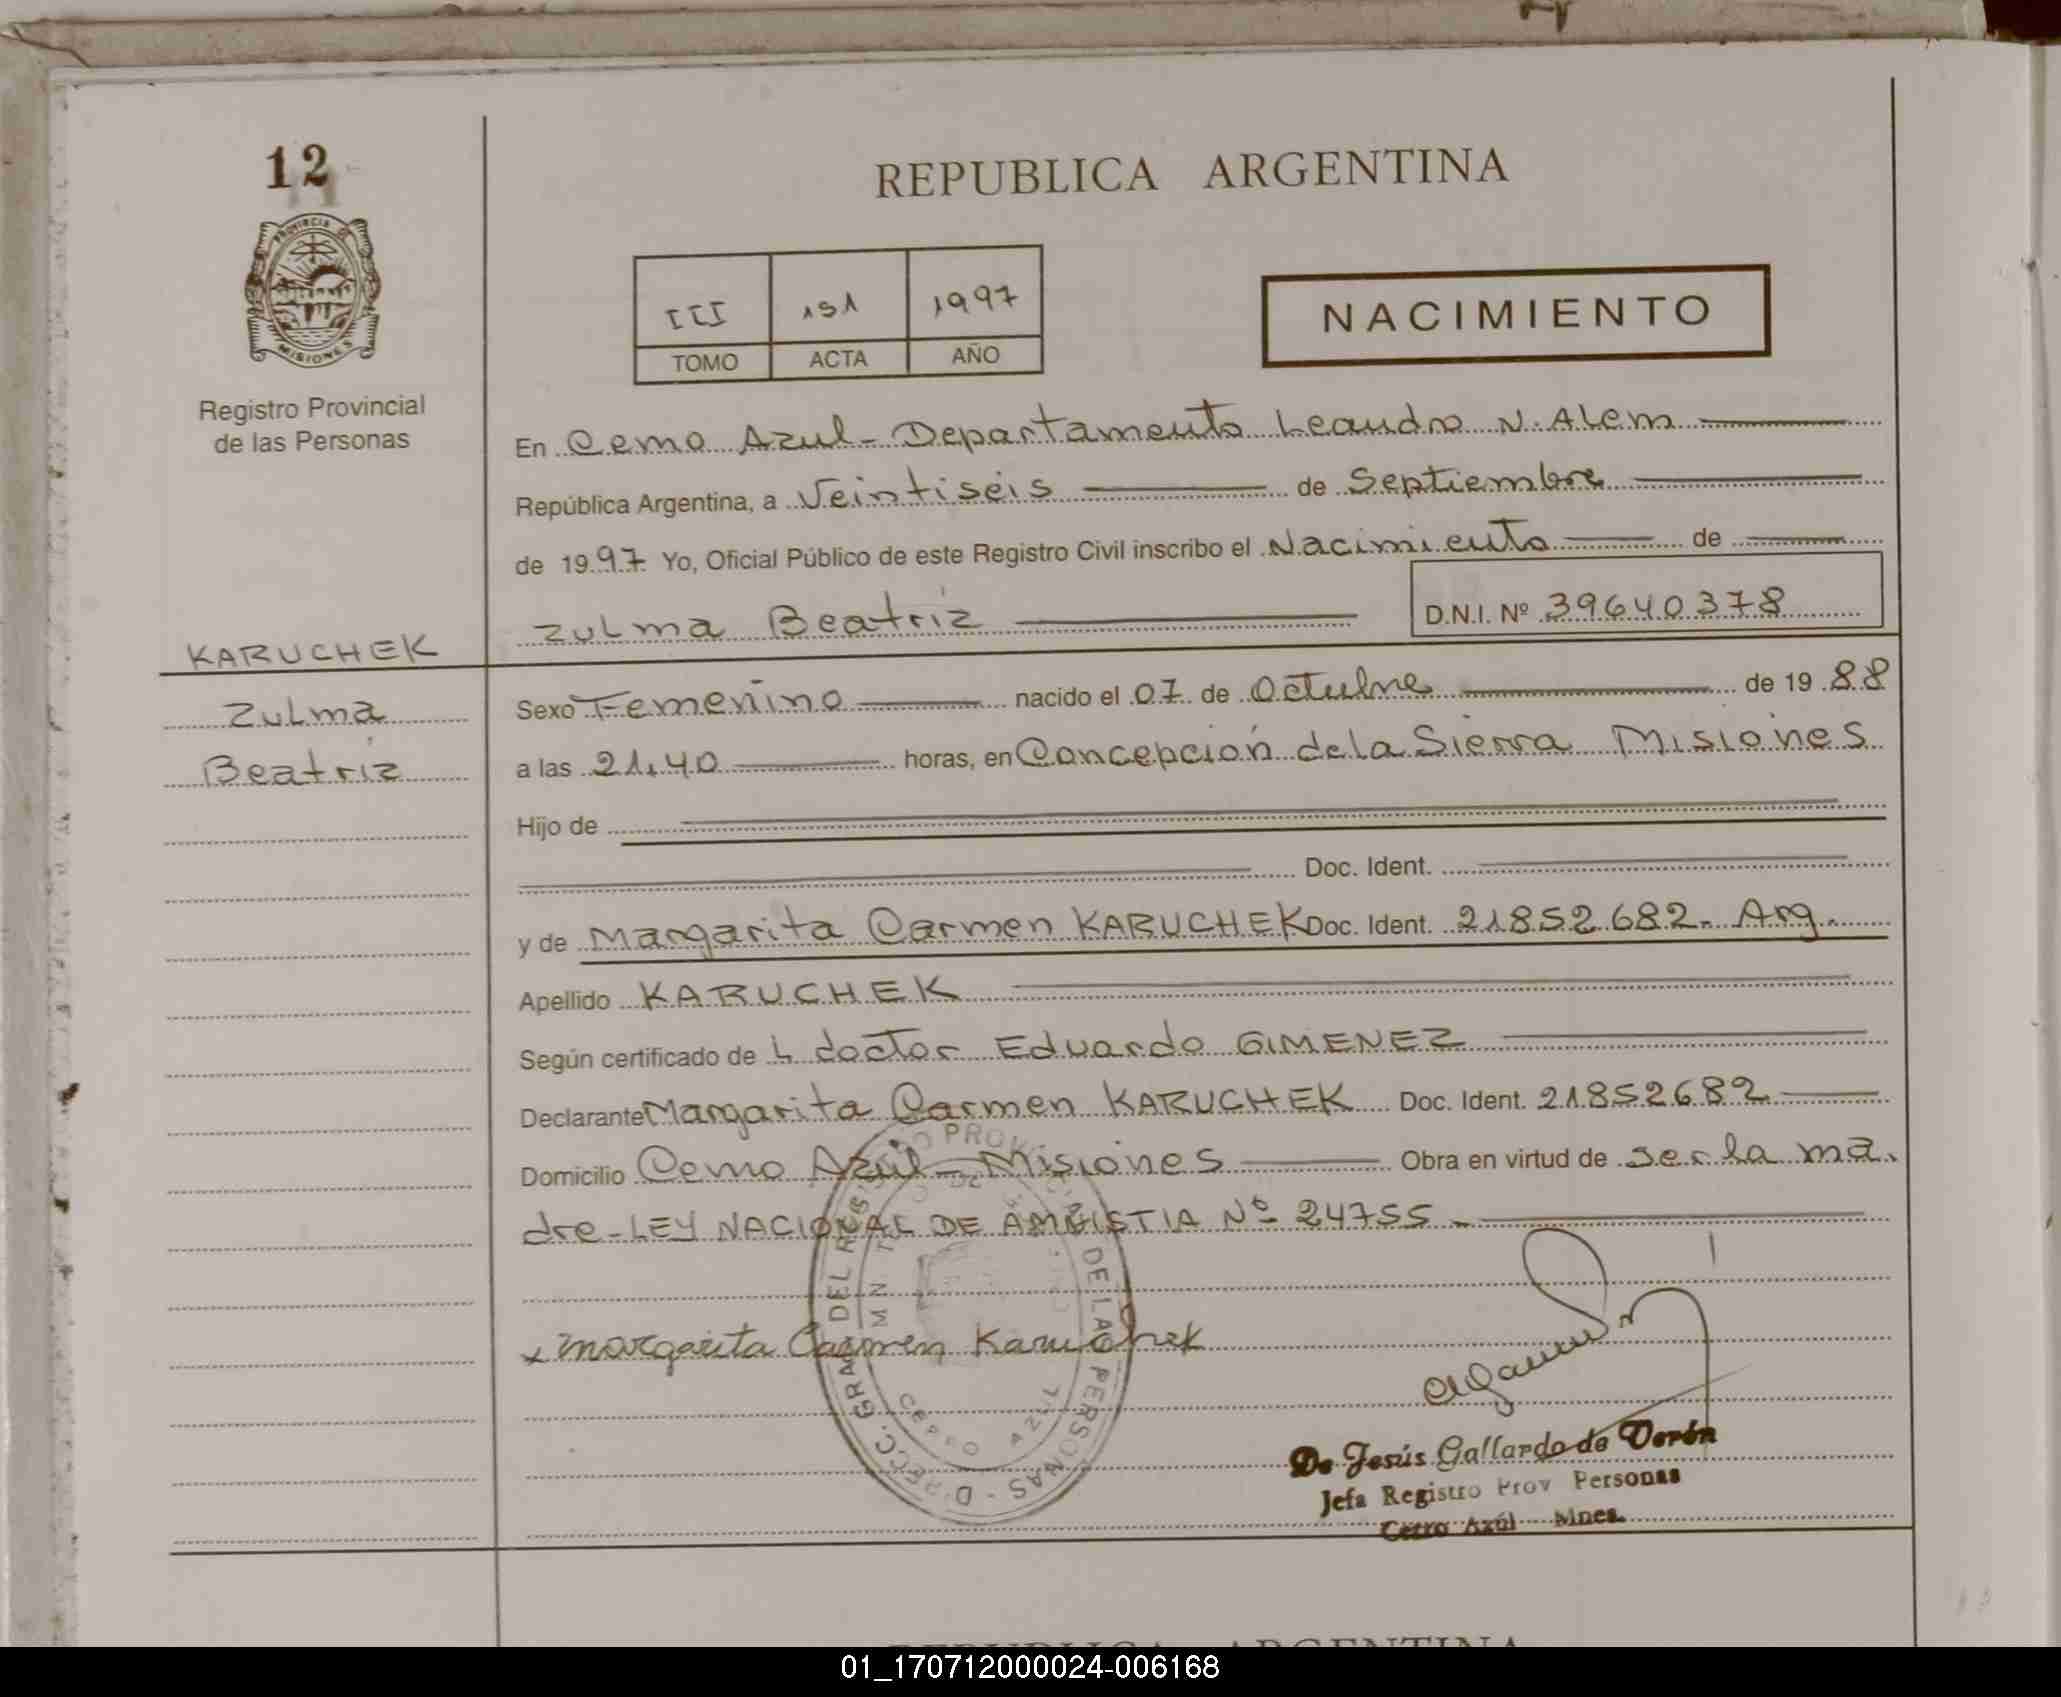 12
REPUBLICA ARGENTINA
PROVINCIA DE
MISIONES
III 151 1997
TOMO ACTA AÑO
NACIMIENTO
Registro Provincial
de las Personas
En Cerro Azul - Departamento Leandro N. Alem
República Argentina, a Veintiséis de Septiembre
de 1997 Yo, Oficial Público de este Registro Civil inscribo el Nacimiento de
Zulma Beatriz D.N.I. Nº 39640378
KARUCHEK
Zulma
Beatriz
Sexo Femenino nacido el 07 de Octubre de 1988
a las 21,40 horas, en Concepción de la Sierra Misiones
Hijo de
Doc. Ident.
y de Margarita Carmen KARUCHEK Doc. Ident. 21852682. Arg.
Apellido KARUCHEK
Según certificado de L doctor Eduardo GIMENEZ
Declarante Margarita Carmen KARUCHEK Doc. Ident. 21852682
Domicilio Cerro Azul - Misiones Obra en virtud de ser la ma
dre - LEY NACIONAL DE AMNISTIA Nº 24755
x Margarita Carmen Karuchek
CERRO AZUL
De Jesús Gallardo de Verón
Jefa Registro Prov Personas
Cerro Azúl Mnes.
REPUBLICA ARGENTINA
01_170712000024-006168